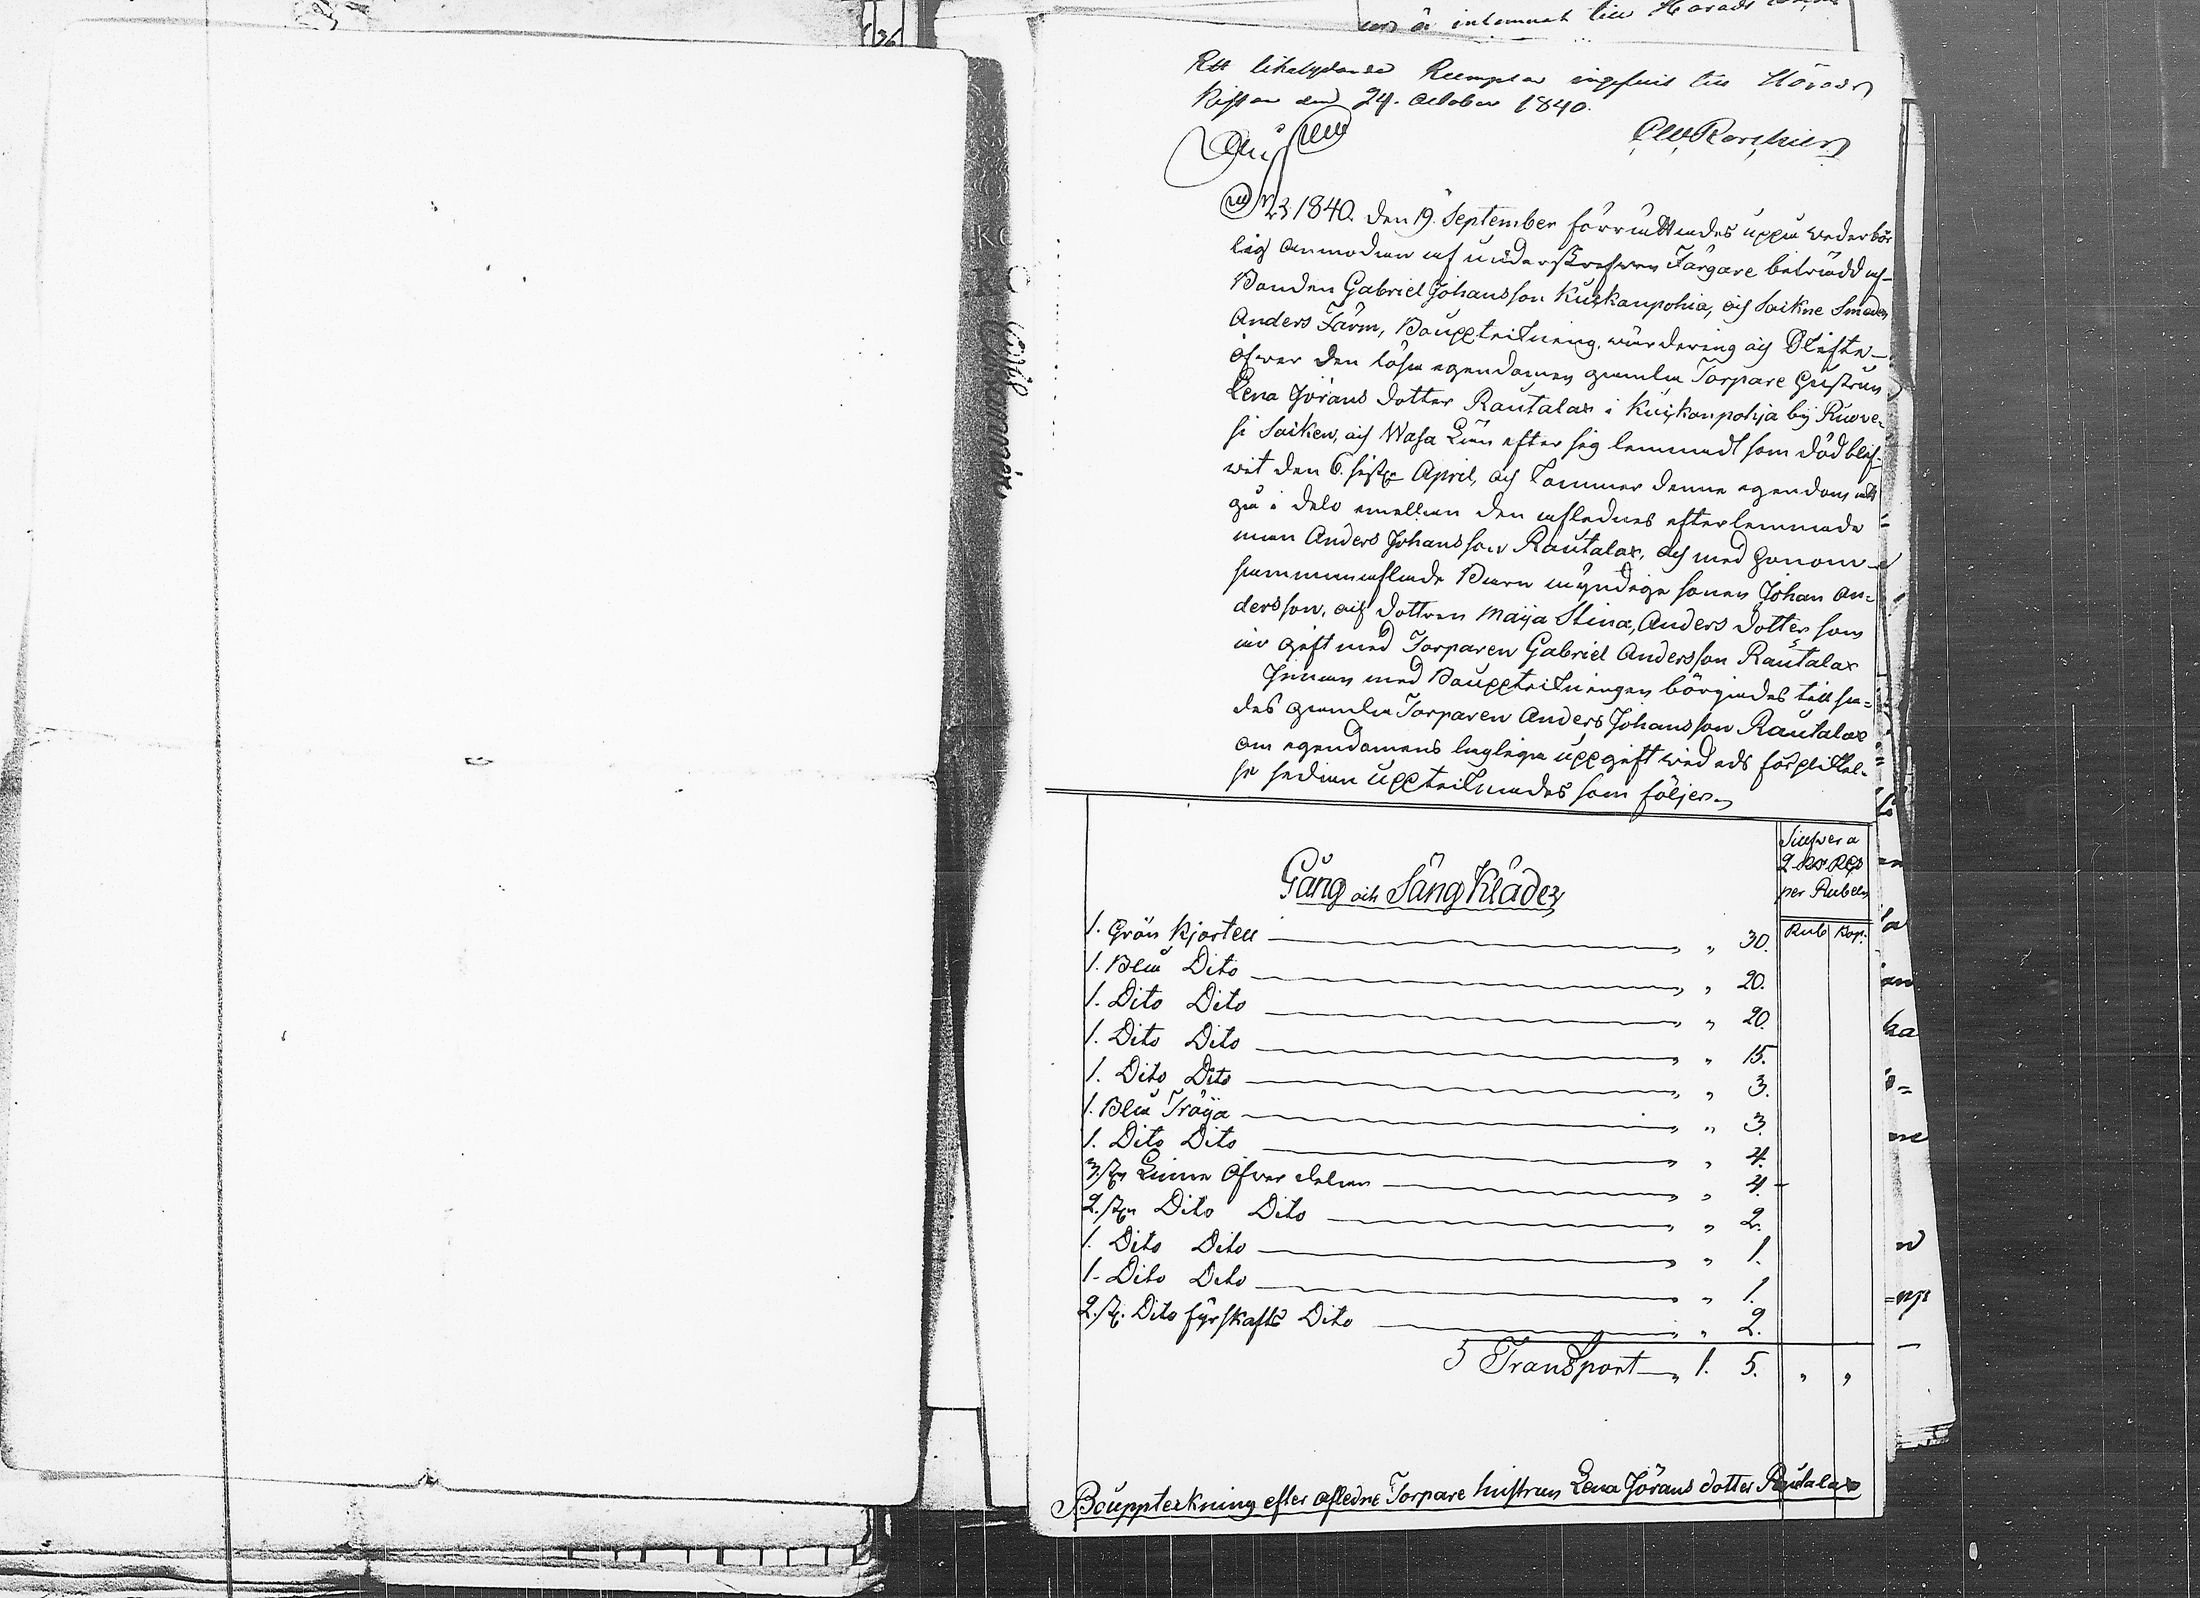 Ett likalydande Exemplar ingifvit till Härads
Kistan den 24. October 1840.
År 1840. den 19. September förrättades uppå wederbör
lig anmodan af underskrefwen Färgare beträdd af
Bonden Gabriel Johansson Kuskanpohia, och Sockne Smeden
Anders Färm, Bouppteckning, wärdering och
öfwer den lösa egendomen gamla Torpare Gustrun
Lena Jörans dotter Rautalax i Kuskonpohja bÿ Ruowe-
si Socken, och Wasa Län efter sig lemnadt som död blef-
wit den 6. sistl. April, och kommer denna egendom att
gå i delo emellan den aflednes efterlemnade
man Anders Johansson Rautalax, och med honom
sammanaflade Barn mÿndiga sonen Johan An-
dersson, och dottren Maija Stina, Anders dotter som
är gift med Torparen Gabriel Andersson Rautalax
Innan med Bouppteckningen börjades tillsa-
des gamla Torparen Anders Johansson Rautalax
om egendomens laglega uppgift wid eds förplicktel-
se sedan uppteknades som följer
Gång och Säng Kläder
Sillfwer a
per Rubeln
Rub Kop.
1. Grön Kjortell " 30.
1. Blå Dito " 20.
1. Dito Dito " 20.
1. Dito Dito " 15.
1. Dito Dito " 3.
1. Blå Tröÿa " 3.
1. Dito Dito " 4.
3. st. Linne Öfwer delar " 4.
2. st. Dito Dito " 2.
1. Dito Dito " 1.
1. Dito Dito " 1.
2. st. Dito fÿrskafts Dito " 2.
Transport " 1. 5. " "
Bouppteckning efter afledne Torpare hustrun Lena Jörans dotter Rautalax